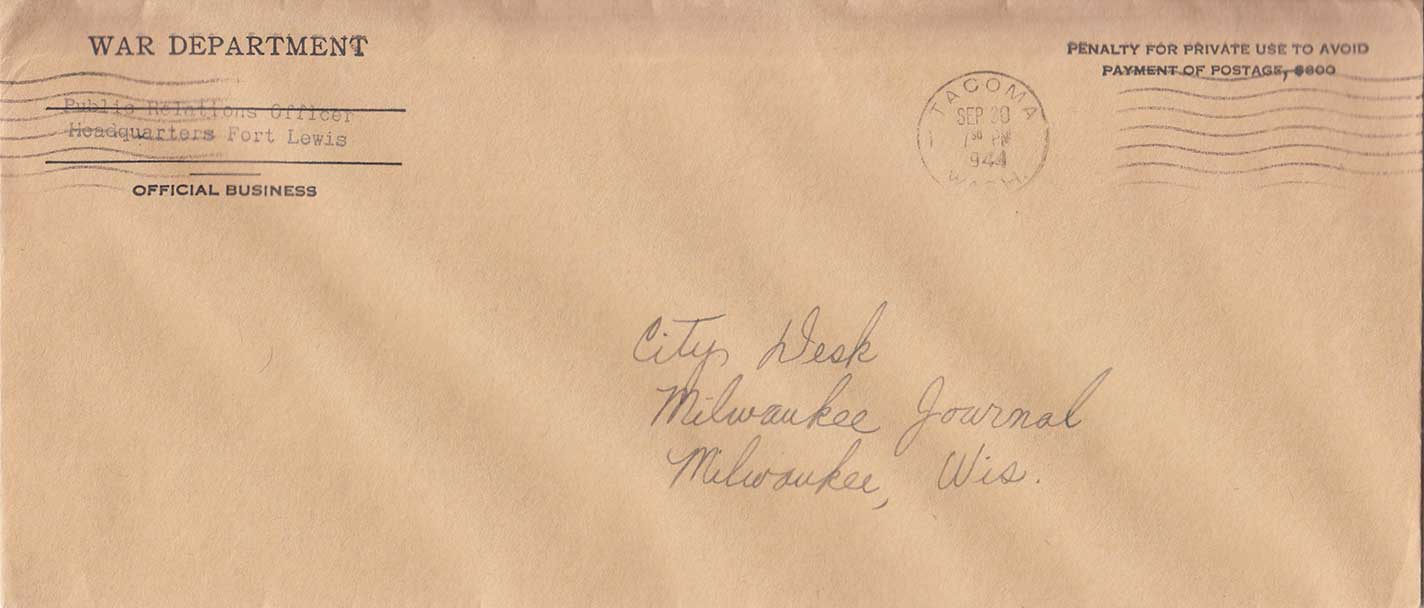 WAR DEPARTMENT
Public Relations Officer
Headquarters Fort Lewis
OFFICIAL BUSINESS
PENALTY FOR PRIVATE USE TO AVOID
PAYMENT OF POSTAGE, $300
TACOMA
SEP 20
7 30 PM
944
WASH.
City Desk
Milwaukee Journal
Milwaukee, Wis.